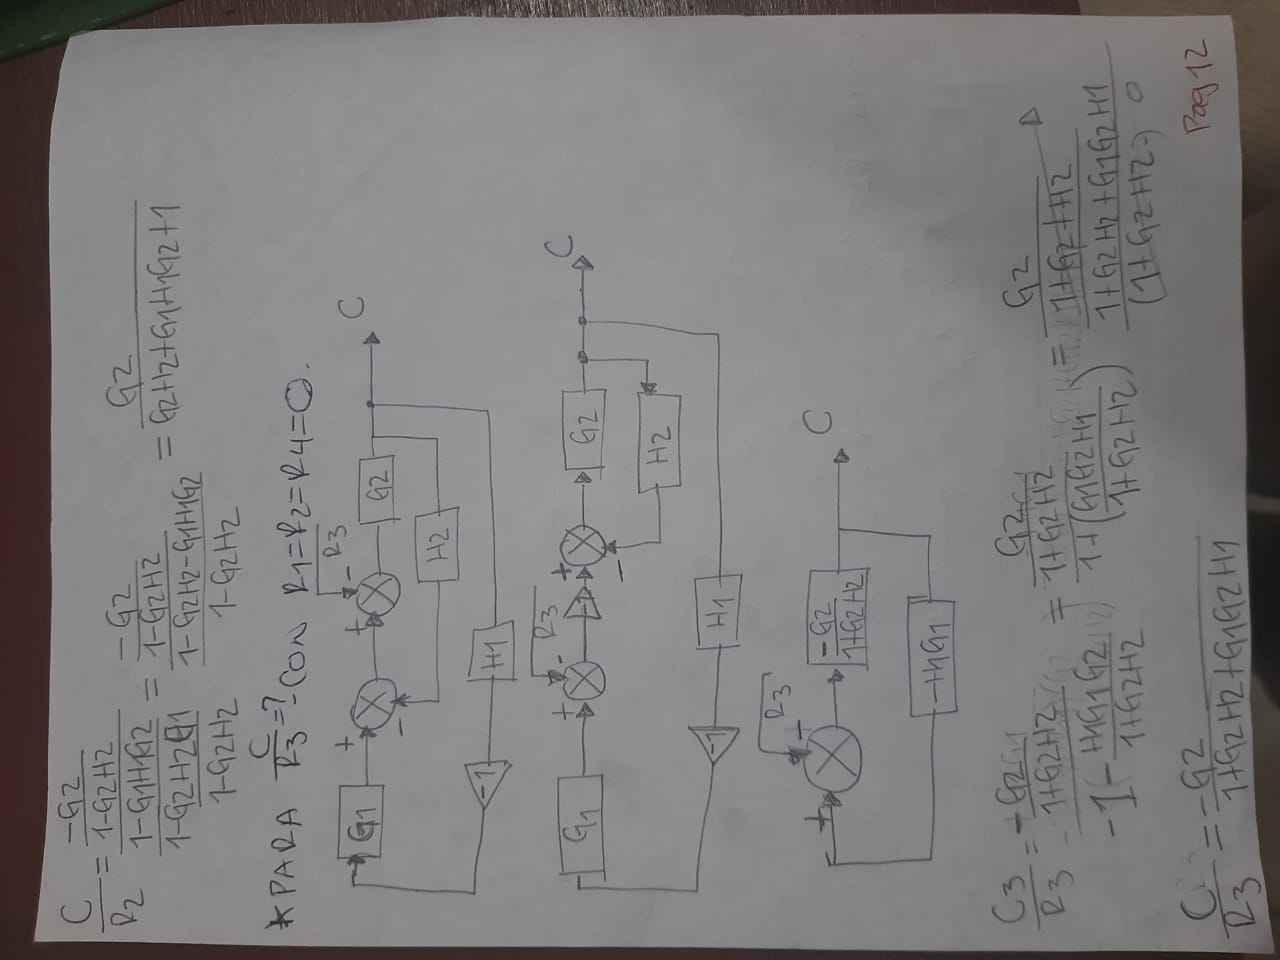 C/R2 = (-G2/(1-G2H2))/((1-G1H1G2)/(1-G2H2G1)/(1-G2H2)) = (-G2/(1-G2H2))/((1-G2H2-G1H1G2)/(1-G2H2)) = G2/(G2H2+G1H1G2+1)
*PARA C/R3=? CON R1=R2=R4=0.
R3
G1 + + - G2 C
- H2
-1 H1
R3
G1 + - -1 + G2 C
- H2
-1 H1
R3
+ - -G2/(1+G2H2) C
-H1G1
C3/R3 = (-G2/(1+G2H2))/(-1-(H1G1G2/(1+G2H2))) = (G2/(1+G2H2))/(1+(G1G2H1/(1+G2H2))) = (G2/(1+G2+H2))/((1+G2H2+G1G2H1)/(1+G2+H2))
C/R3 = -G2/(1+G2H2+G1G2H1)
Pag 12